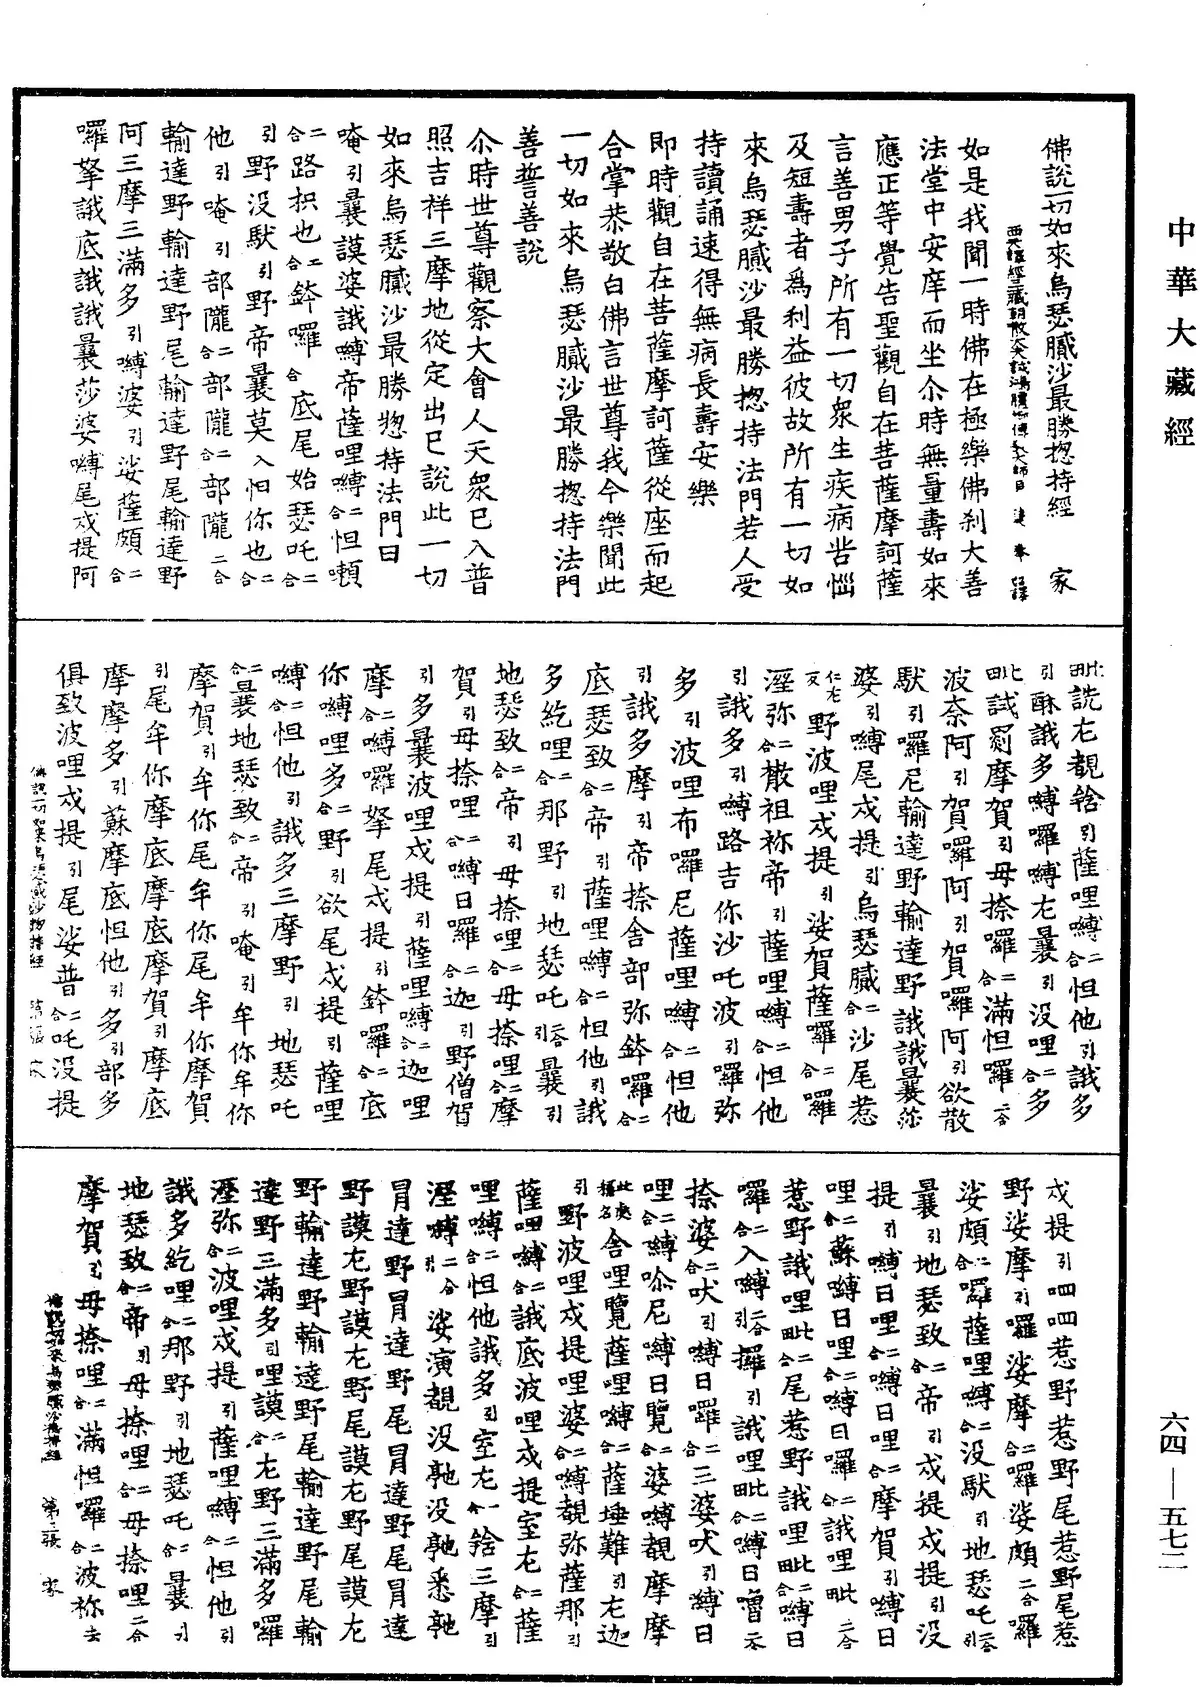 中華大藏經
佛說一切如來烏瑟膩沙最勝揔持經　家
如是我聞一時佛在極樂佛剎大善
法堂中安庠而坐尒時無量壽如來
應正等覺告聖觀自在菩薩摩訶薩
言善男子所有一切衆生疾病苦惱
及短壽者爲利益彼故所有一切如
來烏瑟膩沙最勝揔持法門若人受
持讀誦速得無病長壽安樂
即時觀自在菩薩摩訶薩從座而起
合掌恭敬白佛言世尊我今樂聞此
一切如來烏瑟膩沙最勝揔持法門
善誓善說
尒時世尊觀察大會人天衆已入普
照吉祥三摩地從定出已說此一切
如來烏瑟膩沙最勝惣持法門曰
唵引曩謨婆誐嚩帝薩哩嚩二合怛𡃤
二合路枳也二合鉢囉二合底尾始瑟吒二合
引野没馱引野帝曩莫入怛你也二合
他引唵引部隴二合部隴二合部隴二合
輸達野輸達野尾輸達野尾輸達野
阿三摩三滿多引嚩婆引娑薩頗二合
囉拏誐底誐誐曩莎婆嚩尾戍提阿
引酥誐多嚩囉嚩左曩引没哩二合多
波奈阿引賀囉阿引賀囉阿引欲散
馱引囉尼輸達野輸達野誐誐曩莎
婆引嚩尾戍提引烏瑟膩二合沙尾惹
野波哩戍提引娑賀薩囉二合囉
濕弥二合散祖祢帝引薩哩嚩二合怛他
引誐多引嚩路吉你沙吒波引囉弥
多引波哩布囉尼薩哩嚩二合怛他
引誐多摩引帝捺舍部弥鉢囉二合
底瑟致二合帝引薩哩嚩二合怛他引誐
多紇哩二合那野引地瑟吒二合引曩引
地瑟致二合帝引母捺哩二合母捺哩二合摩
賀引母捺哩二合嚩日囉二合迦引野僧賀
引多曩波哩戍提引薩哩嚩二合迦哩
摩二合嚩囉拏尾戍提引鉢囉二合底
你嚩哩多二合野引欲尾戍提引薩哩
嚩二合怛他引誐多三摩野引地瑟吒
二合曩地瑟致二合帝引唵引牟你牟你
摩賀引牟你尾牟你尾牟你摩賀
引尾牟你摩底摩底摩賀引摩底
摩摩多引蘇摩底怛他引多引部多
俱致波哩戍提引尾娑普二合吒没提
戍提引呬呬惹野惹野尾惹野尾惹
野娑摩二合囉娑摩二合囉娑頗二合囉
娑頗二合囉薩哩嚩二合没馱引地瑟吒二合引
曩引地瑟致二合帝引戍提戍提引没
提引嚩日哩二合嚩日哩二合摩賀引嚩日
哩二合蘇嚩日哩二合嚩日囉二合誐哩毗二合
惹野誐哩毗二合尾惹野誐哩毗二合嚩日
捺婆二合吠引嚩日囉二合三婆吠引嚩日
哩二合嚩尒尼嚩日覽二合婆嚩覩摩摩
引野波哩戍提哩婆二合嚩覩弥薩那引
薩哩嚩二合誐底波哩戍提室左二合薩
哩嚩二合怛他誐多引室左二合捨三摩引
冐達野冐達野尾冐達野尾冐達
野謨左野謨左野尾謨左野尾謨左
野輸達野輸達野尾輸達野尾輸
達野三滿多引哩謨二合左野三滿多囉
濕弥二合波哩戍提引薩哩嚩二合怛他引
誐多紇哩二合那野引地瑟吒二合曩引
地瑟致二合帝引母捺哩二合母捺哩二合
摩賀引母捺哩二合滿怛囉二合波祢去
六四—五七二